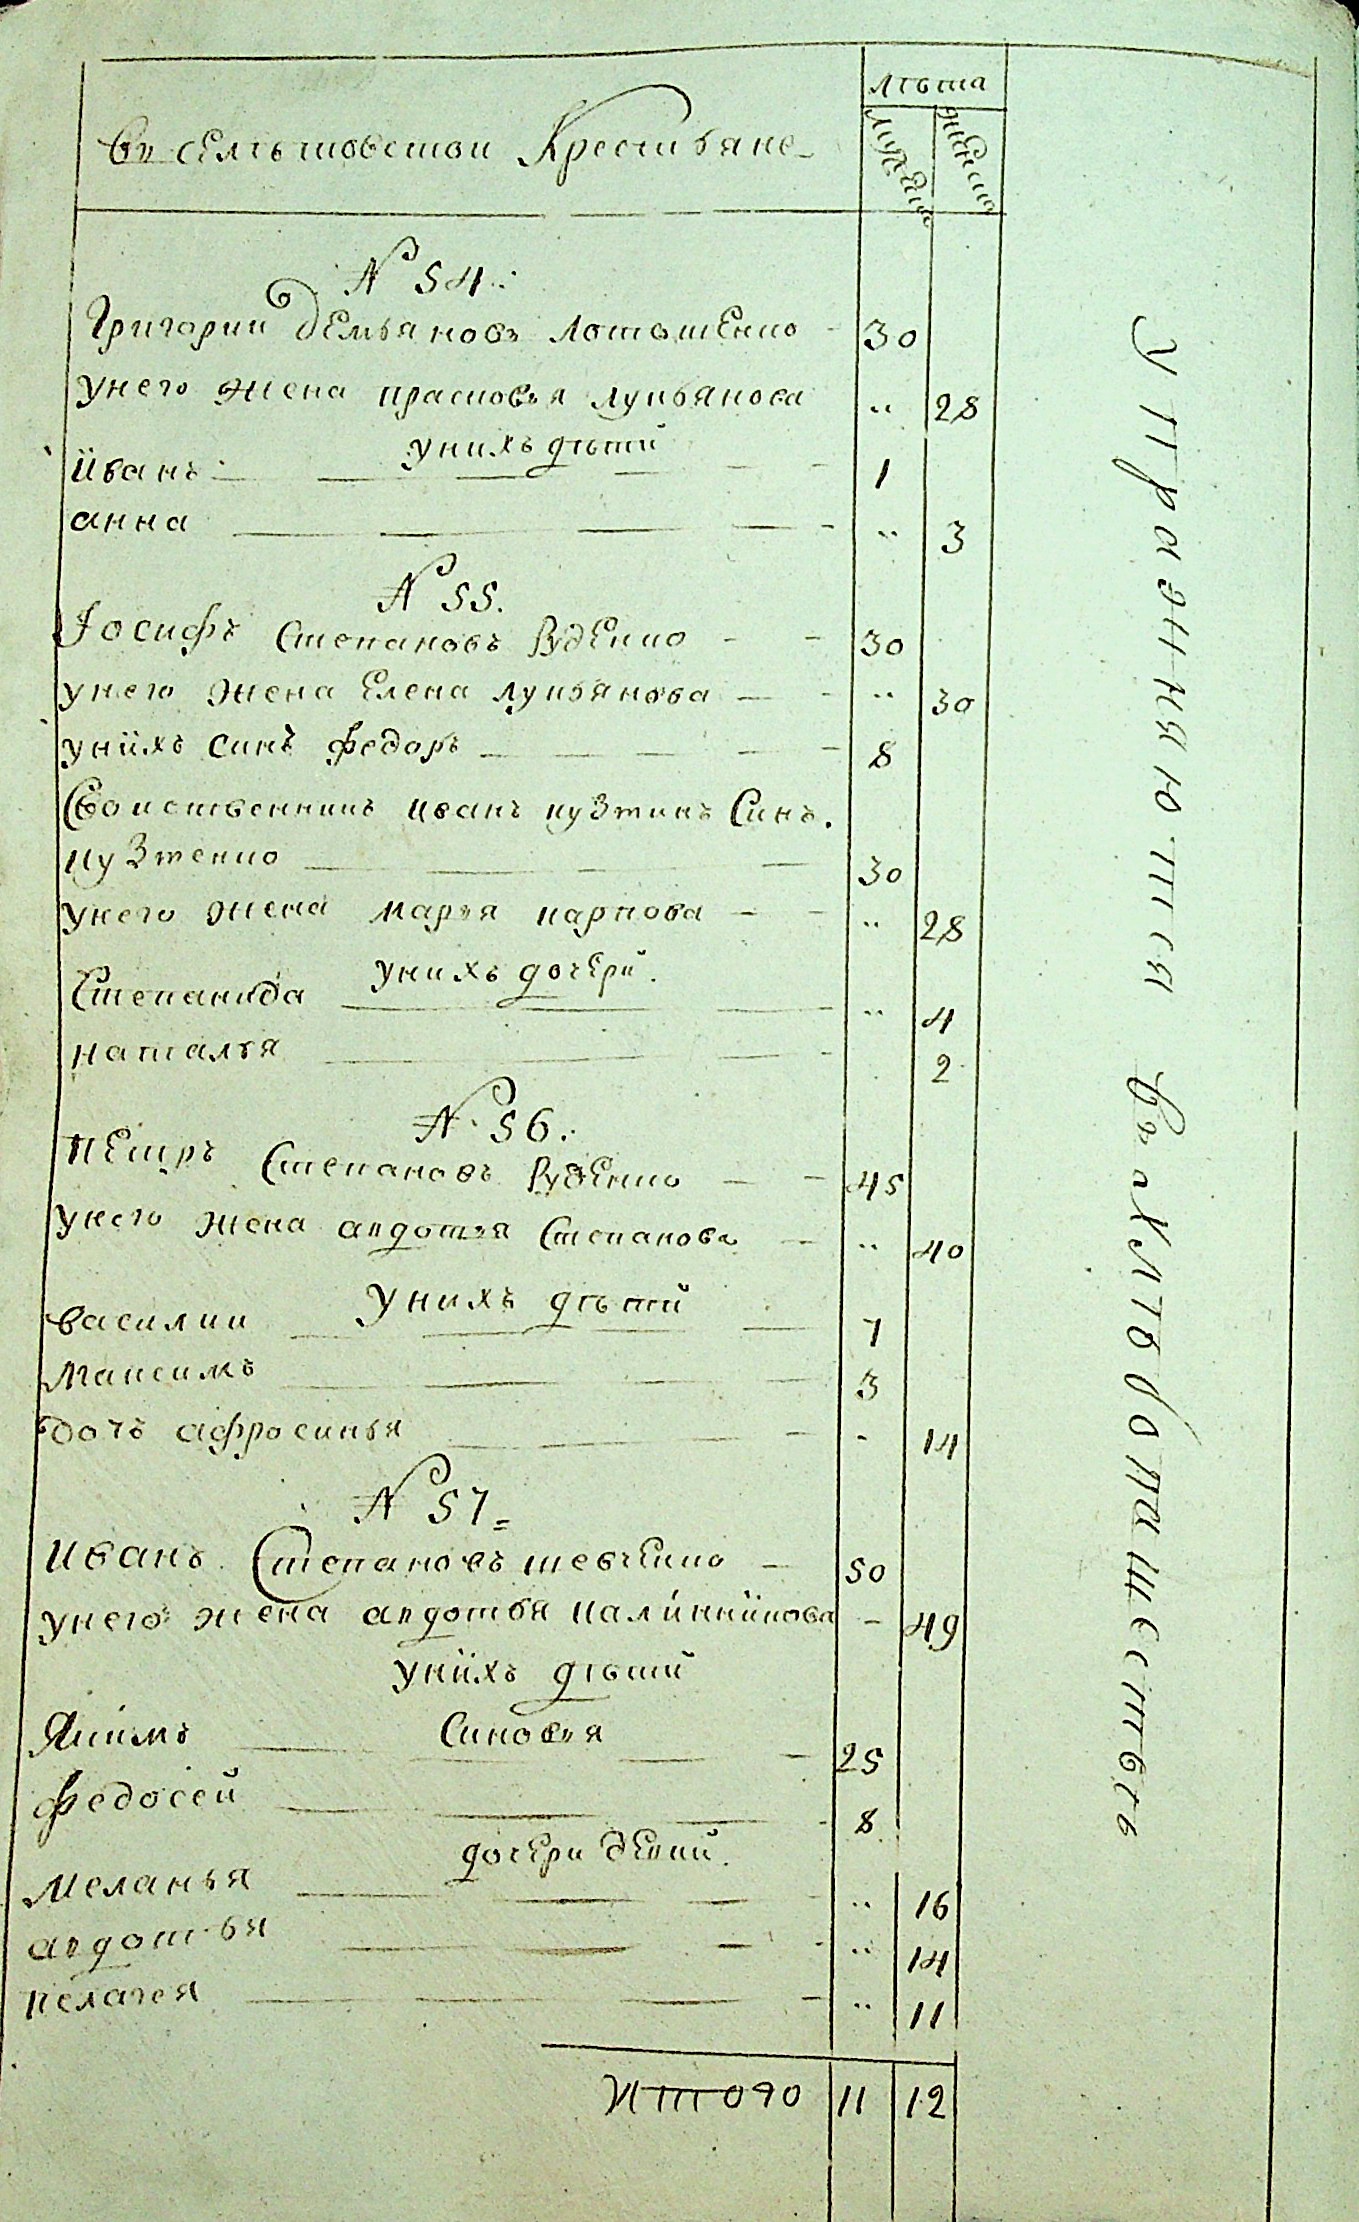 лѣта
въ селѣ шовстои Крестьяне
мужеск женска
N 54.
Григории Демьяновъ Лотошенко 30
унего жена прасковья лукьянова " 28
унихъ дѣтй
Иванъ 1
анна " 3
N 55.
Іосифъ Степановъ Руденко 30
унего жена Елена лукьянова " 30
унихъ синъ федоръ 8
Своиственникъ иванъ кузминъ Синъ.
кузменко 30
унего жена марья карпова " 28
унихъ дочери.
Степанида " 4
наталья 2
N. 56.
Петръ Степановъ Руденко 45
унего жена авдотья Степанова " 40
унихъ дѣтй
василии 7
Максимъ 3
дочъ афросинья - 14
N 57
Иванъ Степановъ шевченко 50
унего жена авдотья калинникова - 49
унихъ дѣтй
Синовья
Якимъ 25
федосей 8
дочери девкй.
Меланья " 16
авдотья " 14
пелагея " 11
Итого 11 12
Упражняются въ хлѣбопашествѣ